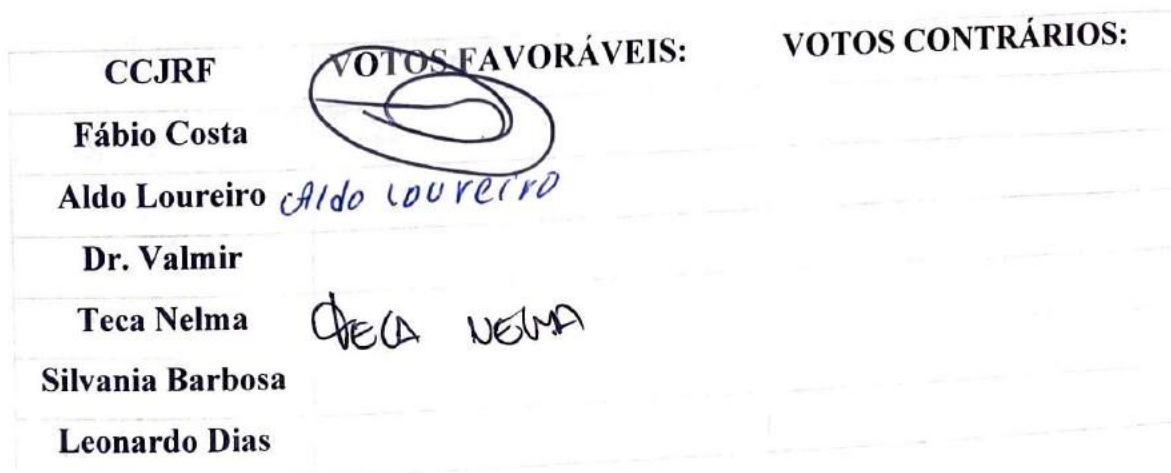 CCJRF VOTOS FAVORÁVEIS: VOTOS CONTRÁRIOS:
Fábio Costa
Aldo Loureiro Aldo Loureiro
Dr. Valmir
Teca Nelma TECA NELMA
Silvania Barbosa
Leonardo Dias